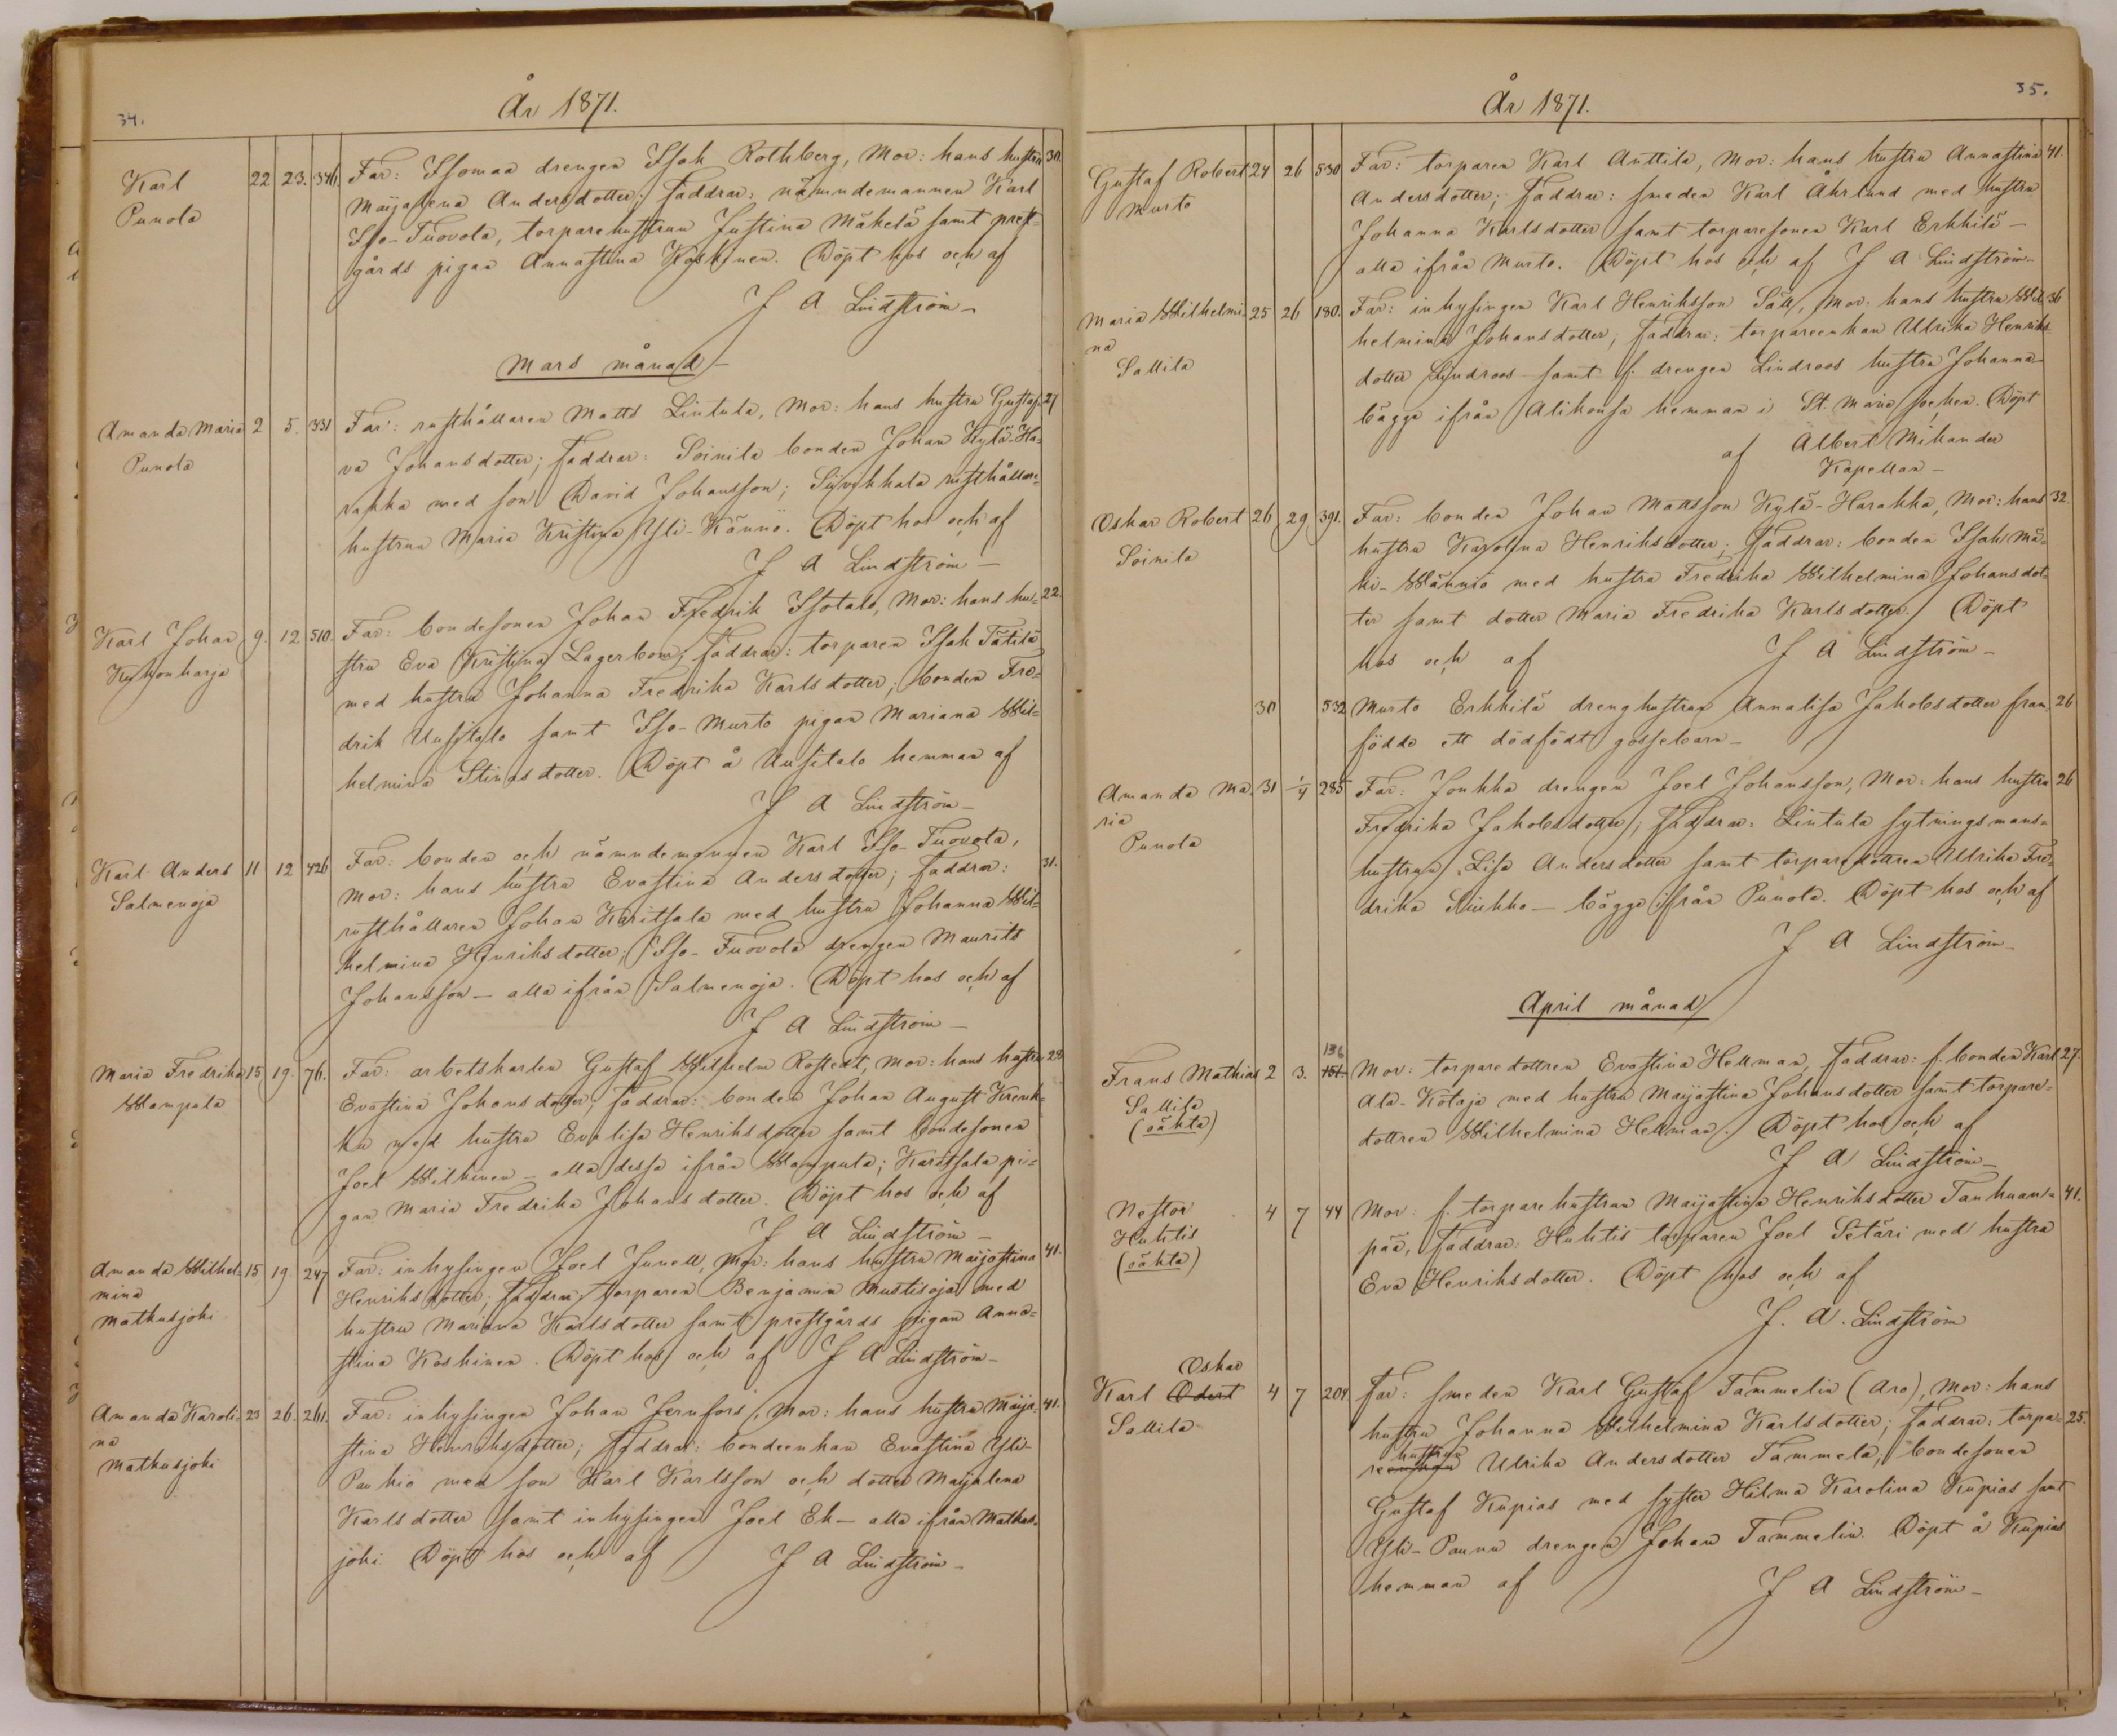 34.
År 1871.
Karl 22 23. 346. Far: Isomaa drengen Isak Rothberg, Mor: hans hustru 30.
Punola Maijalena Andersdotter; faddrar: nämndemannen Karl
Iso-Tuovola, torparehustrun Justina Mäkelä samt prest-
gårds pigan Annastina Koskinen. Döpt hos och af
J A Lindström –
Mars månad –
Amanda Maria 2 5. 331 Far: rusthållaren Matts Lintula, Mor: hans hustru Gusta- 27
Punola va Johansdotter; faddrar: Soinila bonden Johan Kylä-Ha-
rakka med son David Johansson; Sijvikkala rusthållare-
hustrun Maria Kristina Yli-Kännö. Döpt hos och af
J A Lindström –
Karl Johan 9. 12 510. Far: bondesonen Johan Fredrik Isotalo, Mor: hans hu- 22.
Kuhonharja stru Eva Kristina Lagerbom; faddrar: torparen Isak Tätilä
med hustru Johanna Fredrika Karlsdotter; bonden Fre-
drik Uusitalo samt Iso-Murto pigan Mariana Wil-
helmina Stinasdotter. Döpt å Uusitalo hemman af
J A Lindström –
Karl Anders 11 12 426 Far: bonden och nämndemannen Karl Iso-Tuovola,
Salmenoja Mor: hans hustru Evastina Andersdotter; faddrar: 31.
rusthållaren Johan Karitsala med hustru Johanna Wil-
helmina Henriksdotter; Iso-Tuovola drengen Maurits
Johansson – alla ifrån Salmenoja. Döpt hos och af
J A Lindström –
Maria Fredrika 15 19. 76. Far: arbetskarlen Gustaf Wilhelm Rostedt, Mor: hans hustru 28
Wampula Evastina Johansdotter; faddrar: bonden Johan August Krenk-
ku med hustru Evalisa Henriksdotter samt bondesonen
Joel Wilkinen – alla dessa ifrån Wampula; Karitsala pi-
gan Maria Fredrika Johansdotter. Döpt hos och af
J A Lindström –
Amanda Wilhel- 15. 19 247 Far: inhysingen Joel Junell, Mor: hans hustru Maijastina 41.
mina Henriksdotter; faddrar: torparen Benjamin Mustisoja med
Matkusjoki hustru Mariana Karlsdotter samt prestgårds pigan Anna-
stina Koskinen. Döpt hos och af J A Lindström –
Amanda Karoli- 23 26. 261. Far: inhysingen Johan Jernfors, Mor: hans hustru Maija- 41.
na stina Henriksdotter; faddrar: bondeenkan Evastina Yli-
Matkusjoki Paukio med son Karl Karlsson och dotter Maijalena
Karlsdotter samt inhysingen Joel Ek – alla ifrån Matkus-
joki. Döpt hos och af J A Lindström –
35.
År 1871.
Gustaf Robert 24 26 530 Far: torparen Karl Anttila, Mor: hans hustru Annastina 41.
Murto Andersdotter; faddrar: smeden Karl Åhrlund med hustru
Johanna Karlsdotter samt torparesonen Karl Erkkilä –
alla ifrån Murto. Döpt hos och af J A Lindström –
Maria Wilhelmi- 25 26 180. Far: inhysingen Karl Henriksson Säll, Mor: hans hustru Wil- 36
na helmina Johansdotter; faddrar: torpareenkan Ulrika Henriks-
Sallila dotter Lindroos samt f. drengen Lindroos hustru Johanna
bägge ifrån Alikonsa hemman i St. Maria socken. Döpt
af Albert Mikander
Kapellan –
Oskar Robert 26 29 391. Far: bonden Johan Mattsson Kylä-Harakka, Mor: hans 32.
Soinila hustru Karolina Henriksdotter; faddrar: bonden Isak Mä-
ki-Wännió med hustru Fredrika Wilhelmina Johansdot-
ter samt dotter Maria Fredrika Karlsdotter. Döpt
hos och af J A Lindström –
30 532 Murto Erkkilä drenghustrun Annalisa Jakobsdotter fram- 26
födde ett dödfödt gossebarn –
Amanda Ma- 31 1/4 285 Far: Jonkka drengen Joel Johansson, Mor: hans hustru 26
ria Fredrika Jakobsdotter; faddrar: Lintula sytningsmans-
Punola hustrun Lisa Andersdotter samt torparedottren Ulrika Fre-
drika Kuikko – bägge ifrån Punola. Döpt hos och af
J A Lindström –
April månad
136
Frans Mathias 2 3. 151. Mor: torparedottren Evastina Hellman, faddrar: f. bonden Karl 27.
Sallila Ala-Kötaja med hustru Maijastina Johansdotter samt torpare-
(oäkta) dottren Wilhelmina Hellman. Döpt hos och af
J A Lindström –
Nestor 4 7 44 Mor: f. torparehustrun Maijastina Henriksdotter Tanhuan- 41.
Huhtis pää, faddrar: Huhtis torparen Joel Setäri med hustru
(oäkta) Eva Henriksdotter. Döpt hos och af
J. A. Lindström
Oskar
Karl Odert 4 7 204. Far: smeden Karl Gustaf Tammelin (Aro), Mor: hans
Sallila hustru Johanna Wilhelmina Karlsdotter; faddrar: torpa- 25.
hustrun
reenkan Ulrika Andersdotter Tammela, bondesonen
Gustaf Kupias med syster Hilma Karolina Kupias samt
Yli-Paunu drengen Johan Tammelin. Döpt å Kupias
hemman af J A Lindström –